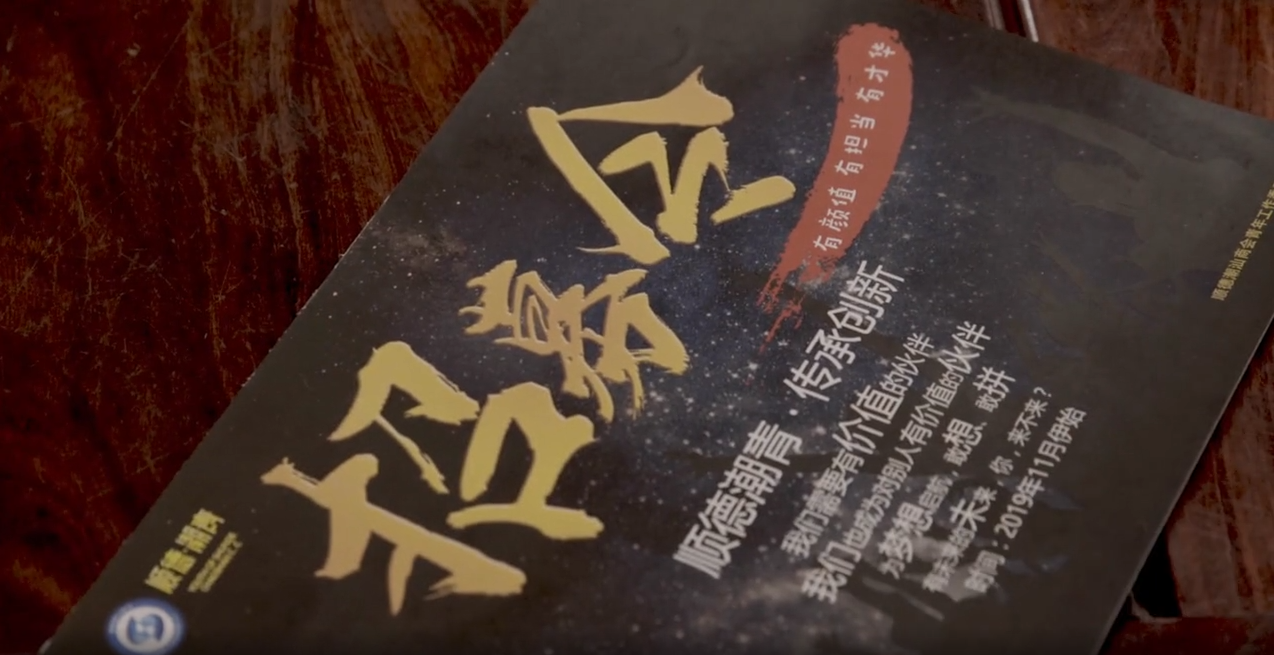 顺德·潮青
招募令
有颜值 有担当 有才华
顺德潮青 传承创新
我们需要有价值的伙伴
我们也成为对别人有价值的伙伴
为梦想启航，敢想、敢拼
有乐灵的未来 你，来不来？
时间：2019年11月伊始
顺德潮汕商会青年工作委